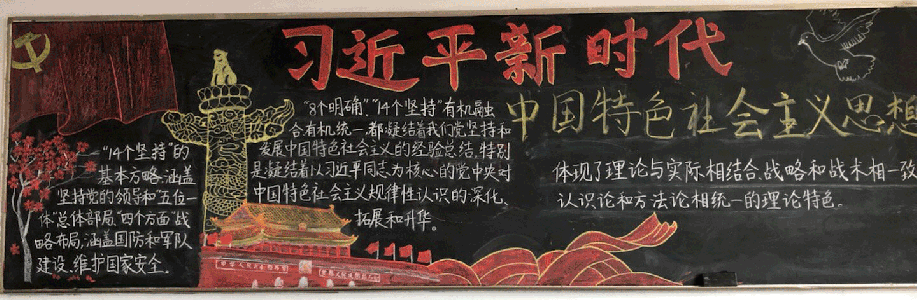 习近平新时代
中国特色社会主义思想
"14个坚持"的
基本方略,涵盖
坚持党的领导和"五位一
体"总体部局,"四个方面"战
略布局,涵盖国防和军队
建设、维护国家安全。
"8个明确""14个坚持"有机融
合有机统一,都凝结着我们党坚持和
发展中国特色社会主义的经验总结,特别
是凝结着以习近平同志为核心的党中央对
中国特色社会主义规律性认识的深化、
拓展和升华。
体现了理论与实际相结合、战略和战术相一致
认识论和方法论相统一的理论特色。